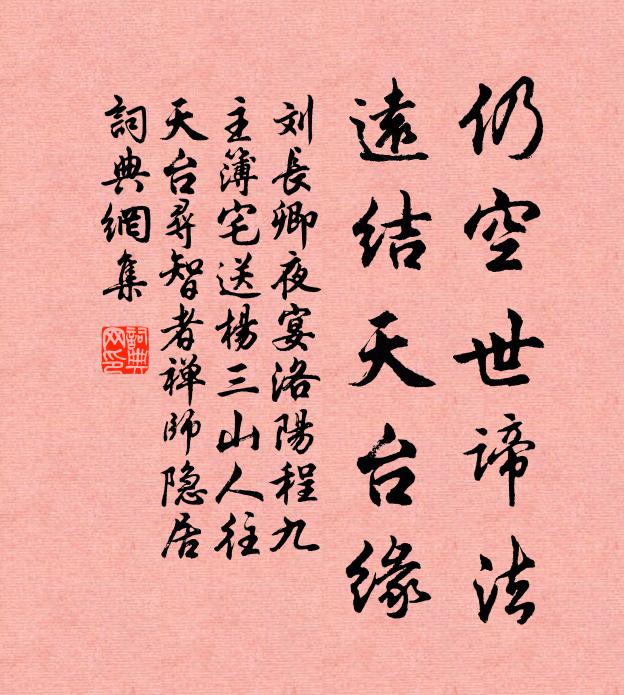 仍空世諦法
遠結天台緣
刘長卿夜宴洛陽程九
主簿宅送楊三山人往
天台尋智者禅師隐居
詞典網集
詞典網印